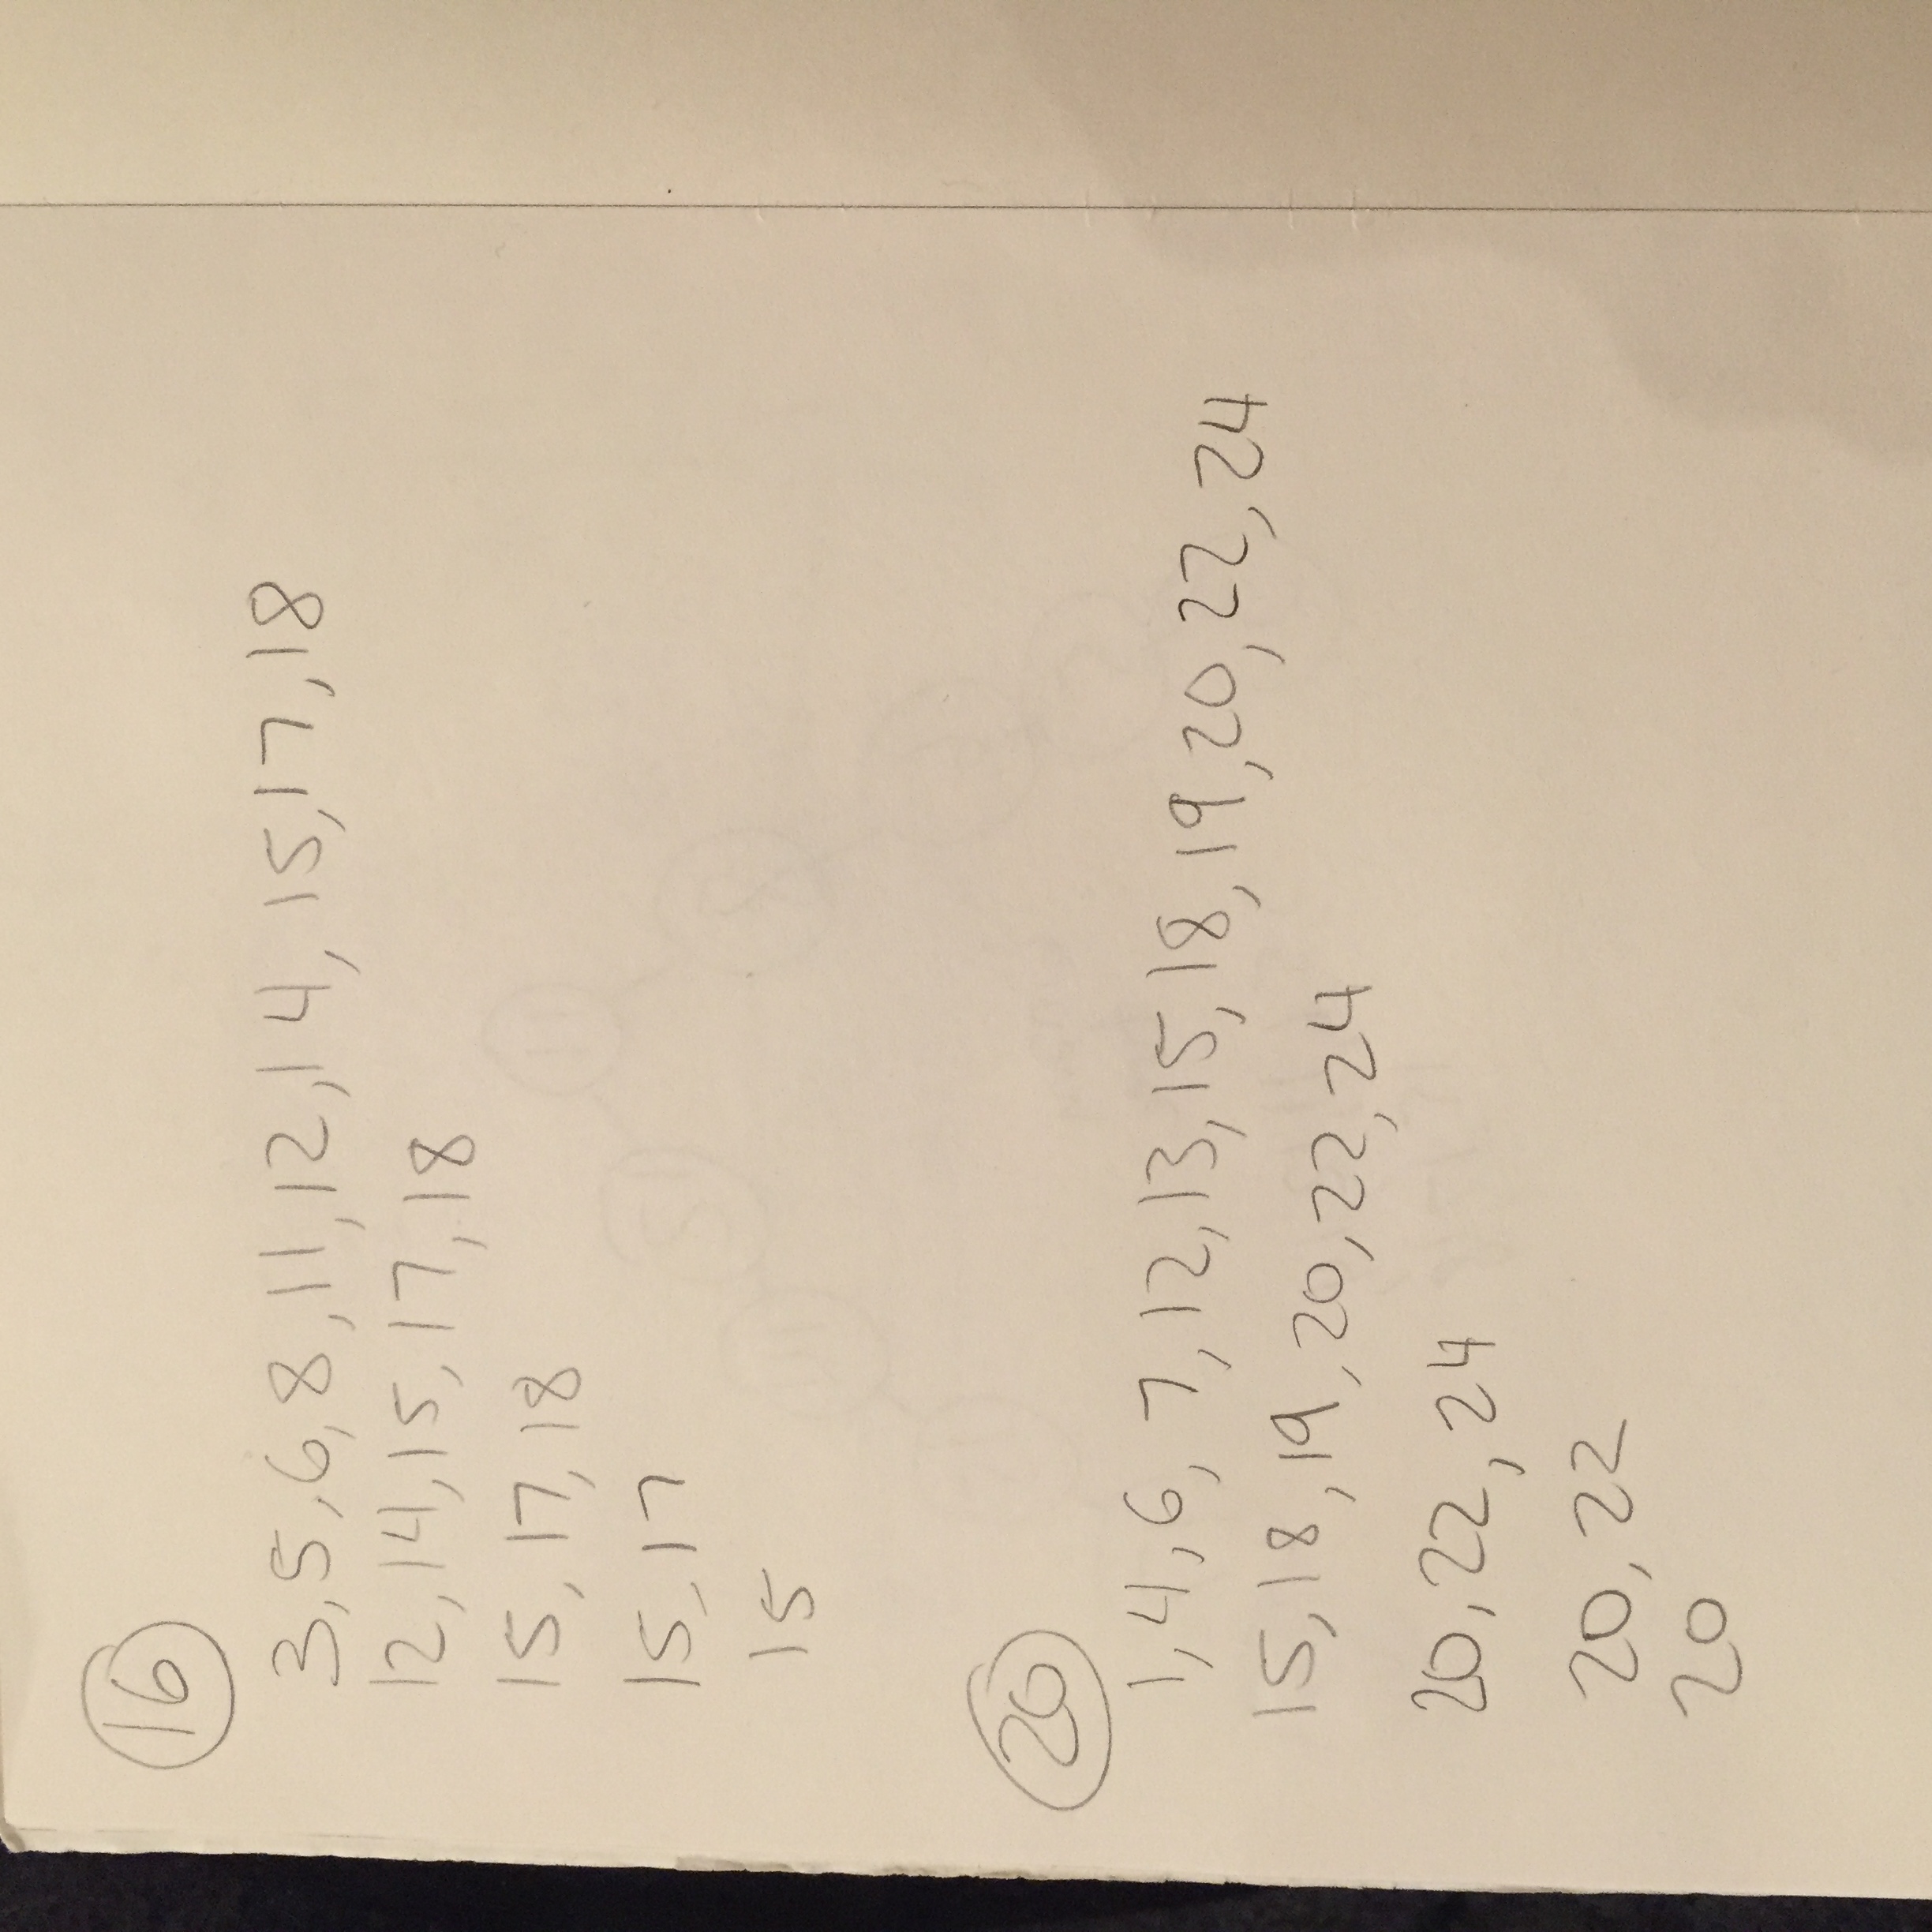 16
3, 5, 6, 8, 11, 12, 14, 15, 17, 18
12, 14, 15, 17, 18
15, 17, 18
15, 17
15
20
1, 4, 6, 7, 12, 13, 15, 18, 19, 20, 22, 24
15, 18, 19, 20, 22, 24
20, 22, 24
20, 22
20